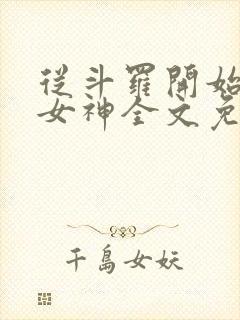 從斗羅開始
女神全文免
千島女妖